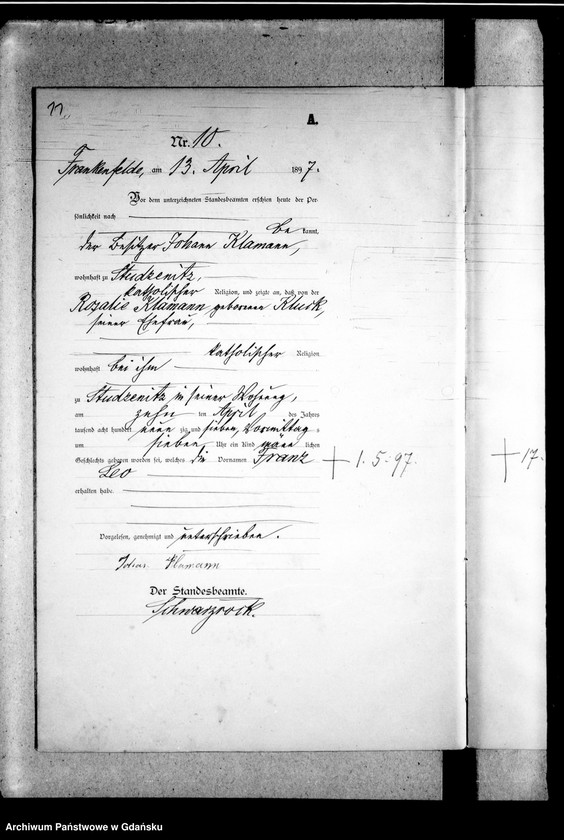 11
A.
Nr. 10.
Frankenfelde, am 13. April 1897.
Vor dem unterzeichneten Standesbeamten erschien heute der Per-
sönlichkeit nach
be kannt,
der Besitzer Johann Klamann,
wohnhaft zu Studzenitz,
katholischer Religion, und zeigte an, daß von der
Rosalie Klamann geborenen Kluck,
seiner Ehefrau,
katholischer Religion
wohnhaft bei ihm
zu Studzenitz in seiner Wohnung,
am zehn ten April des Jahres
tausend acht hundert neun zig und sieben, Vormittag s
um sieben Uhr ein Kind männ lichen
Geschlechts geboren worden sei, welches die Vornamen Franz
Leo
erhalten habe.
Vorgelesen, genehmigt und unterschrieben.
Klamann
Der Standesbeamte.
Schwarzrock.
† 1.5.97.
† 17.
Archiwum Państwowe w Gdańsku